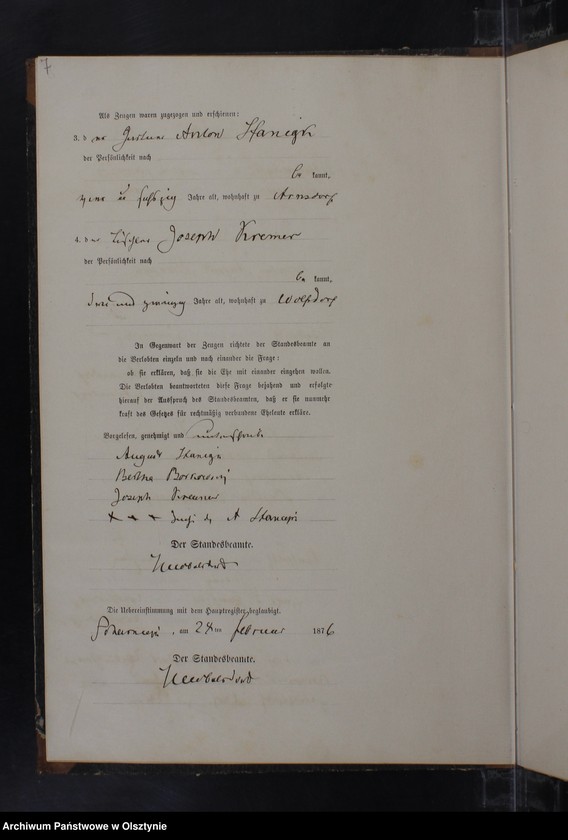 7
Als Zeugen waren zugezogen und erschienen:
3. d er Anton Stanigk
der Persönlichkeit nach
be kannt,
Jahre alt, wohnhaft zu Arnsdorf
4. d er Tischler Joseph Kremer
der Persönlichkeit nach
be kannt,
drei und zwanzig Jahre alt, wohnhaft zu Wolfsdorf
In Gegenwart der Zeugen richtete der Standesbeamte an
die Verlobten einzeln und nach einander die Frage:
ob sie erklären, daß sie die Ehe mit einander eingehen wollen.
Die Verlobten beantworteten diese Frage bejahend und erfolgte
hierauf der Ausspruch des Standesbeamten, daß er sie nunmehr
kraft des Gesetzes für rechtmäßig verbundene Eheleute erkläre.
Vorgelesen, genehmigt und unterschrieben
August Stanigk
Bertha
Joseph Kremer
+ + + des A Stanigk
Der Standesbeamte.
Die Uebereinstimmung mit dem Hauptregister beglaubigt.
am 24ten Februar 1876
Der Standesbeamte.
Archiwum Państwowe w Olsztynie